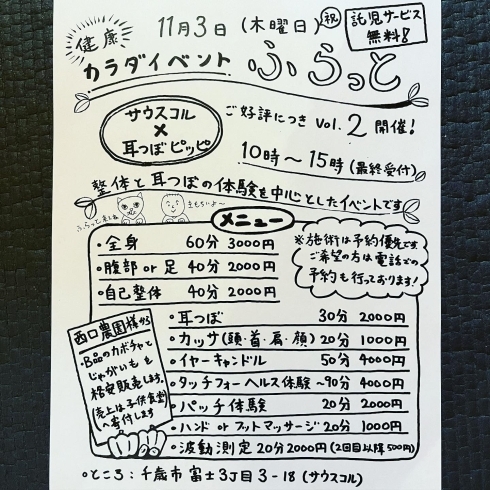 健康
11月3日(木曜日)㊗
託児サービス
無料!
カラダイベント ふらっと
サウスコル
×
耳つぼピッピ
ご好評につき Vol.2 開催!
10時~15時(最終受付)
整体と耳つぼの体験を中心としたイベントです
ふらっときてね
きもちいよ~
メニュー
・全身 60分 3000円
・腹部or足 40分 2000円
・自己整体 40分 2000円
※施術は予約優先です
ご希望の方は電話での
予約も行っております!
西口農園様から
・B品のカボチャと
じゃがいもを
格安販売します。
(売上は子供食堂
へ寄付します
・耳つぼ 30分 2000円
・カッサ(頭・首・肩・顔) 20分 1000円
・イヤーキャンドル 50分 4000円
・タッチフォーヘルス体験 ~90分 4000円
・パッチ体験 20分 2000円
・ハンド or フットマッサージ 20分 1000円
・波動測定 20分 2000円(2回目以降500円)
○ところ:千歳市富士3丁目3-18(サウスコル)